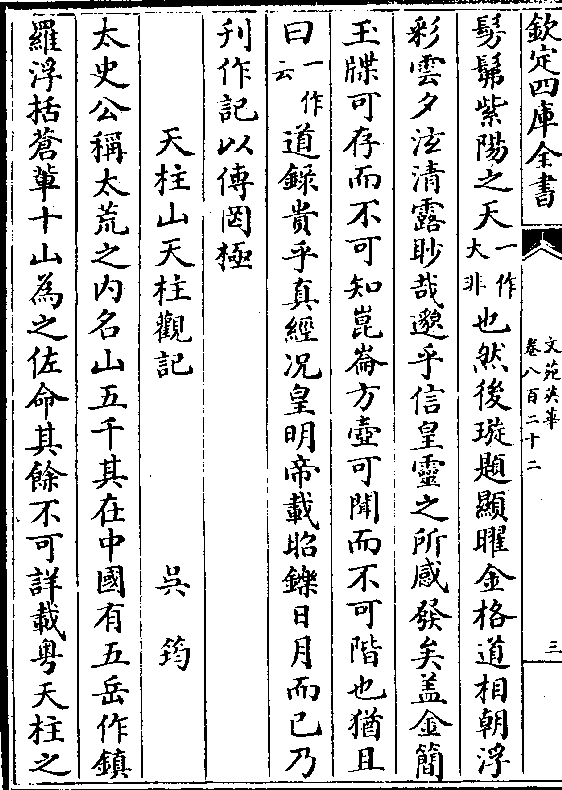 欽定四庫全書
文苑英華
卷八百二十二
三
髣髴紫陽之天一作大非也然後璇題顯曜金格道相朝浮
彩雲夕泫清露眇哉邈乎信皇靈之所感發矣盖金簡
玉牒可存而不可知崑崙方壺可聞而不可階也猶且
曰一作云道錄貴乎真經况皇明帝載昭鑠日月而已乃
刋作記以傳罔極
天柱山天柱觀記
吳筠
太史公稱太荒之内名山五千其在中國有五岳作鎮
羅浮括蒼軰十山為之佐命其餘不可詳載粤天柱之